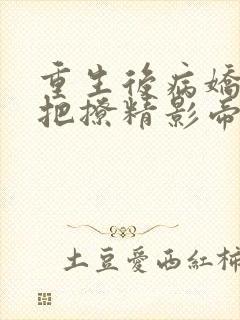 重生後病嬌
把撩精影帝
土豆愛西紅柿